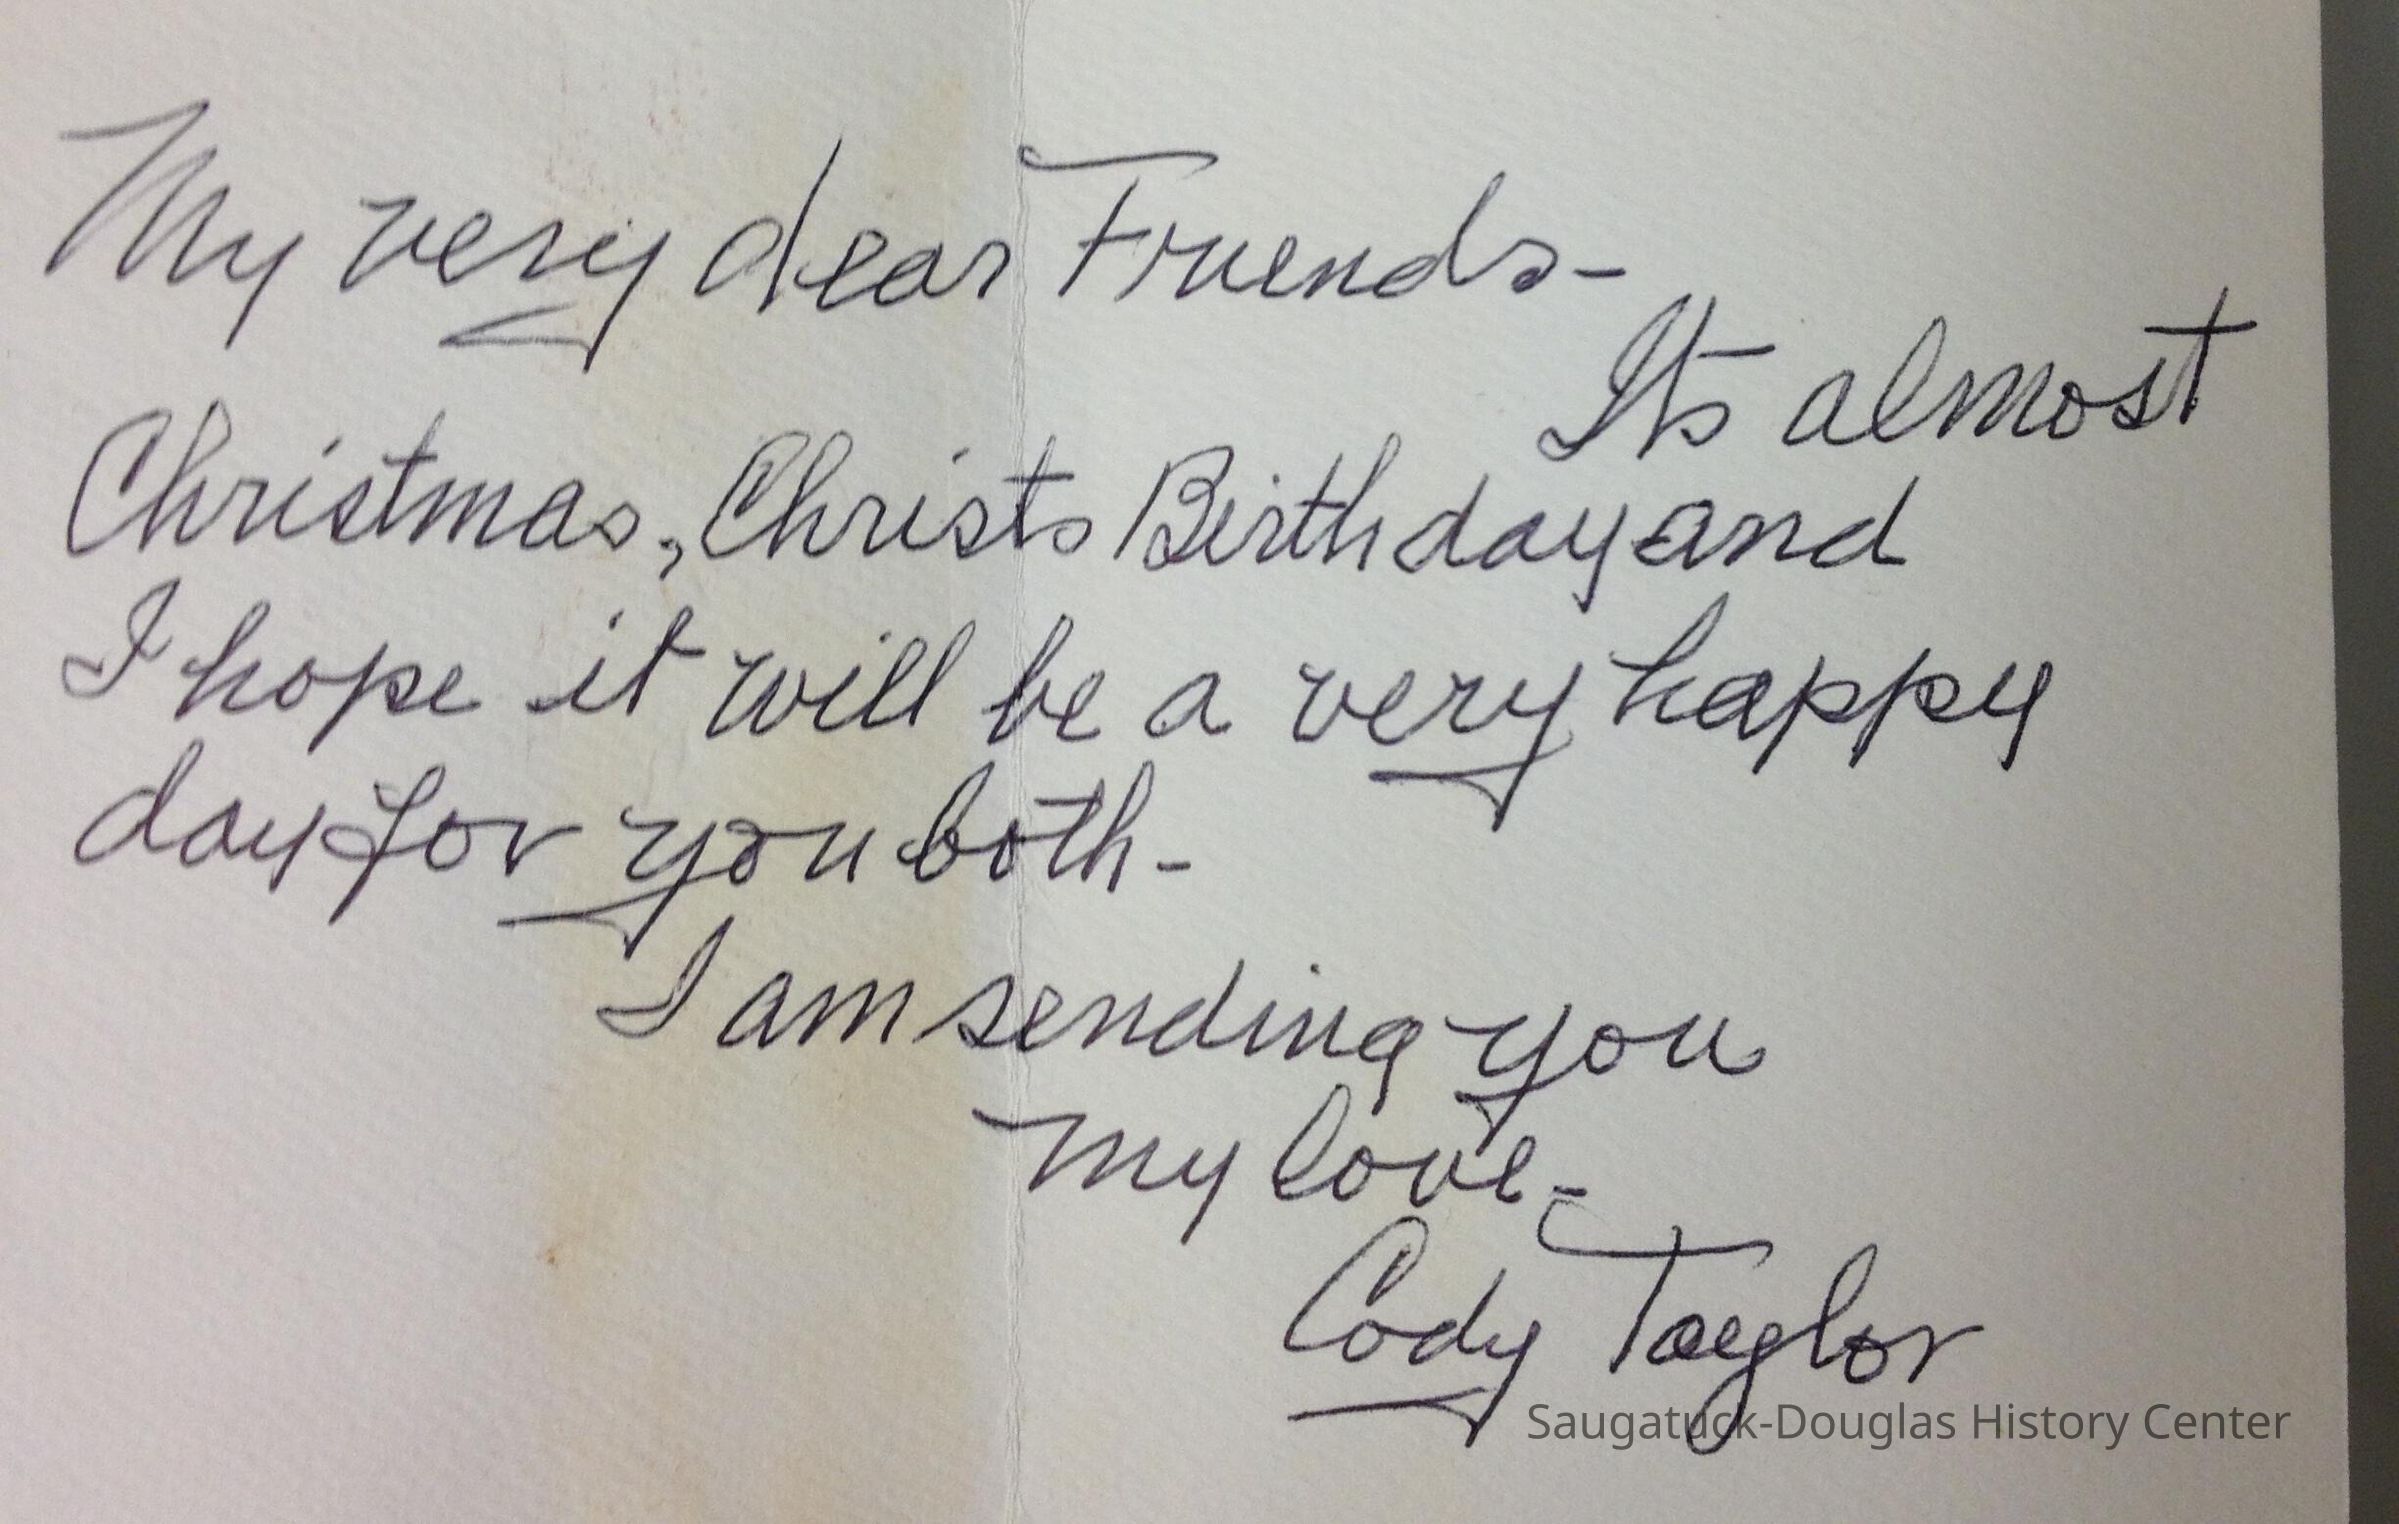 My very dear Friends-
Its almost
Christmas, Christs Birthday and
I hope it will be a very happy
day for you both-
I am sending you
my love-
Cody Taylor
Saugatuck-Douglas History Center